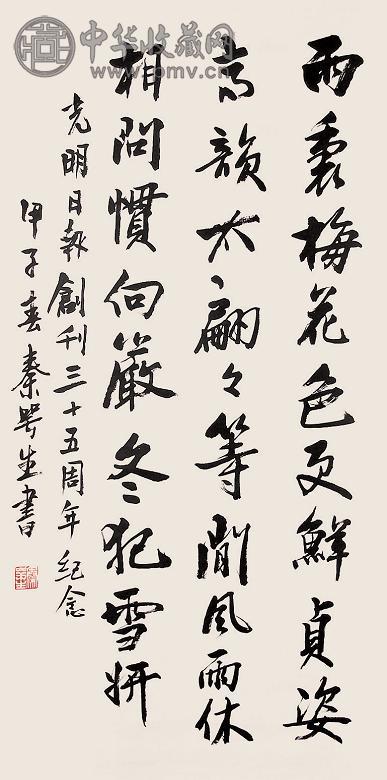 中华收藏网
www.pmv.cn
雨裹梅花色更鮮貞姿
高韻太翩々等閒風雨休
相問慣向嚴冬犯雪妍
光明日報創刊三十五周年紀念
甲子春秦咢生書